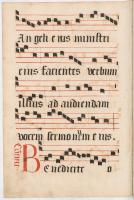 Angeli eius ministri
eius facientes verbum
illius ad audiendam
vocem sermonum eius.
Benedicite o